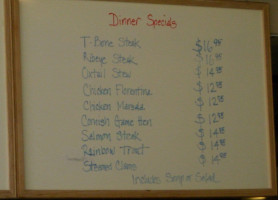 Dinner Specials
T-Bone Steak $16.95
Ribeye Steak $16.95
Oxtail Stew $14.95
Chicken Florentine $12.95
Chicken Marsala $12.95
Cornish Game Hen $12.95
Salmon Steak $14.95
Rainbow Trout $14.95
Steamed Clams $14.95
Includes Soup or Salad